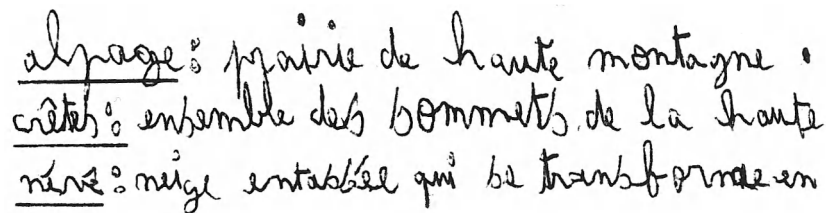 alpage : prairie de haute montagne .
crêtes : ensemble des sommets de la haute
névé : neige entassée qui se transforme en